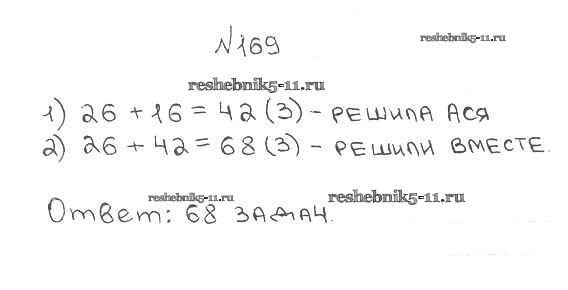 №169
reshebnik5-11.ru
reshebnik5-11.ru
1) 26 + 16 = 42 (З) - РЕШИЛА АСЯ
2) 26 + 42 = 68 (З) - РЕШИЛИ ВМЕСТЕ.
reshebnik5-11.ru
reshebnik5-11.ru
Ответ: 68 ЗАДАЧ.